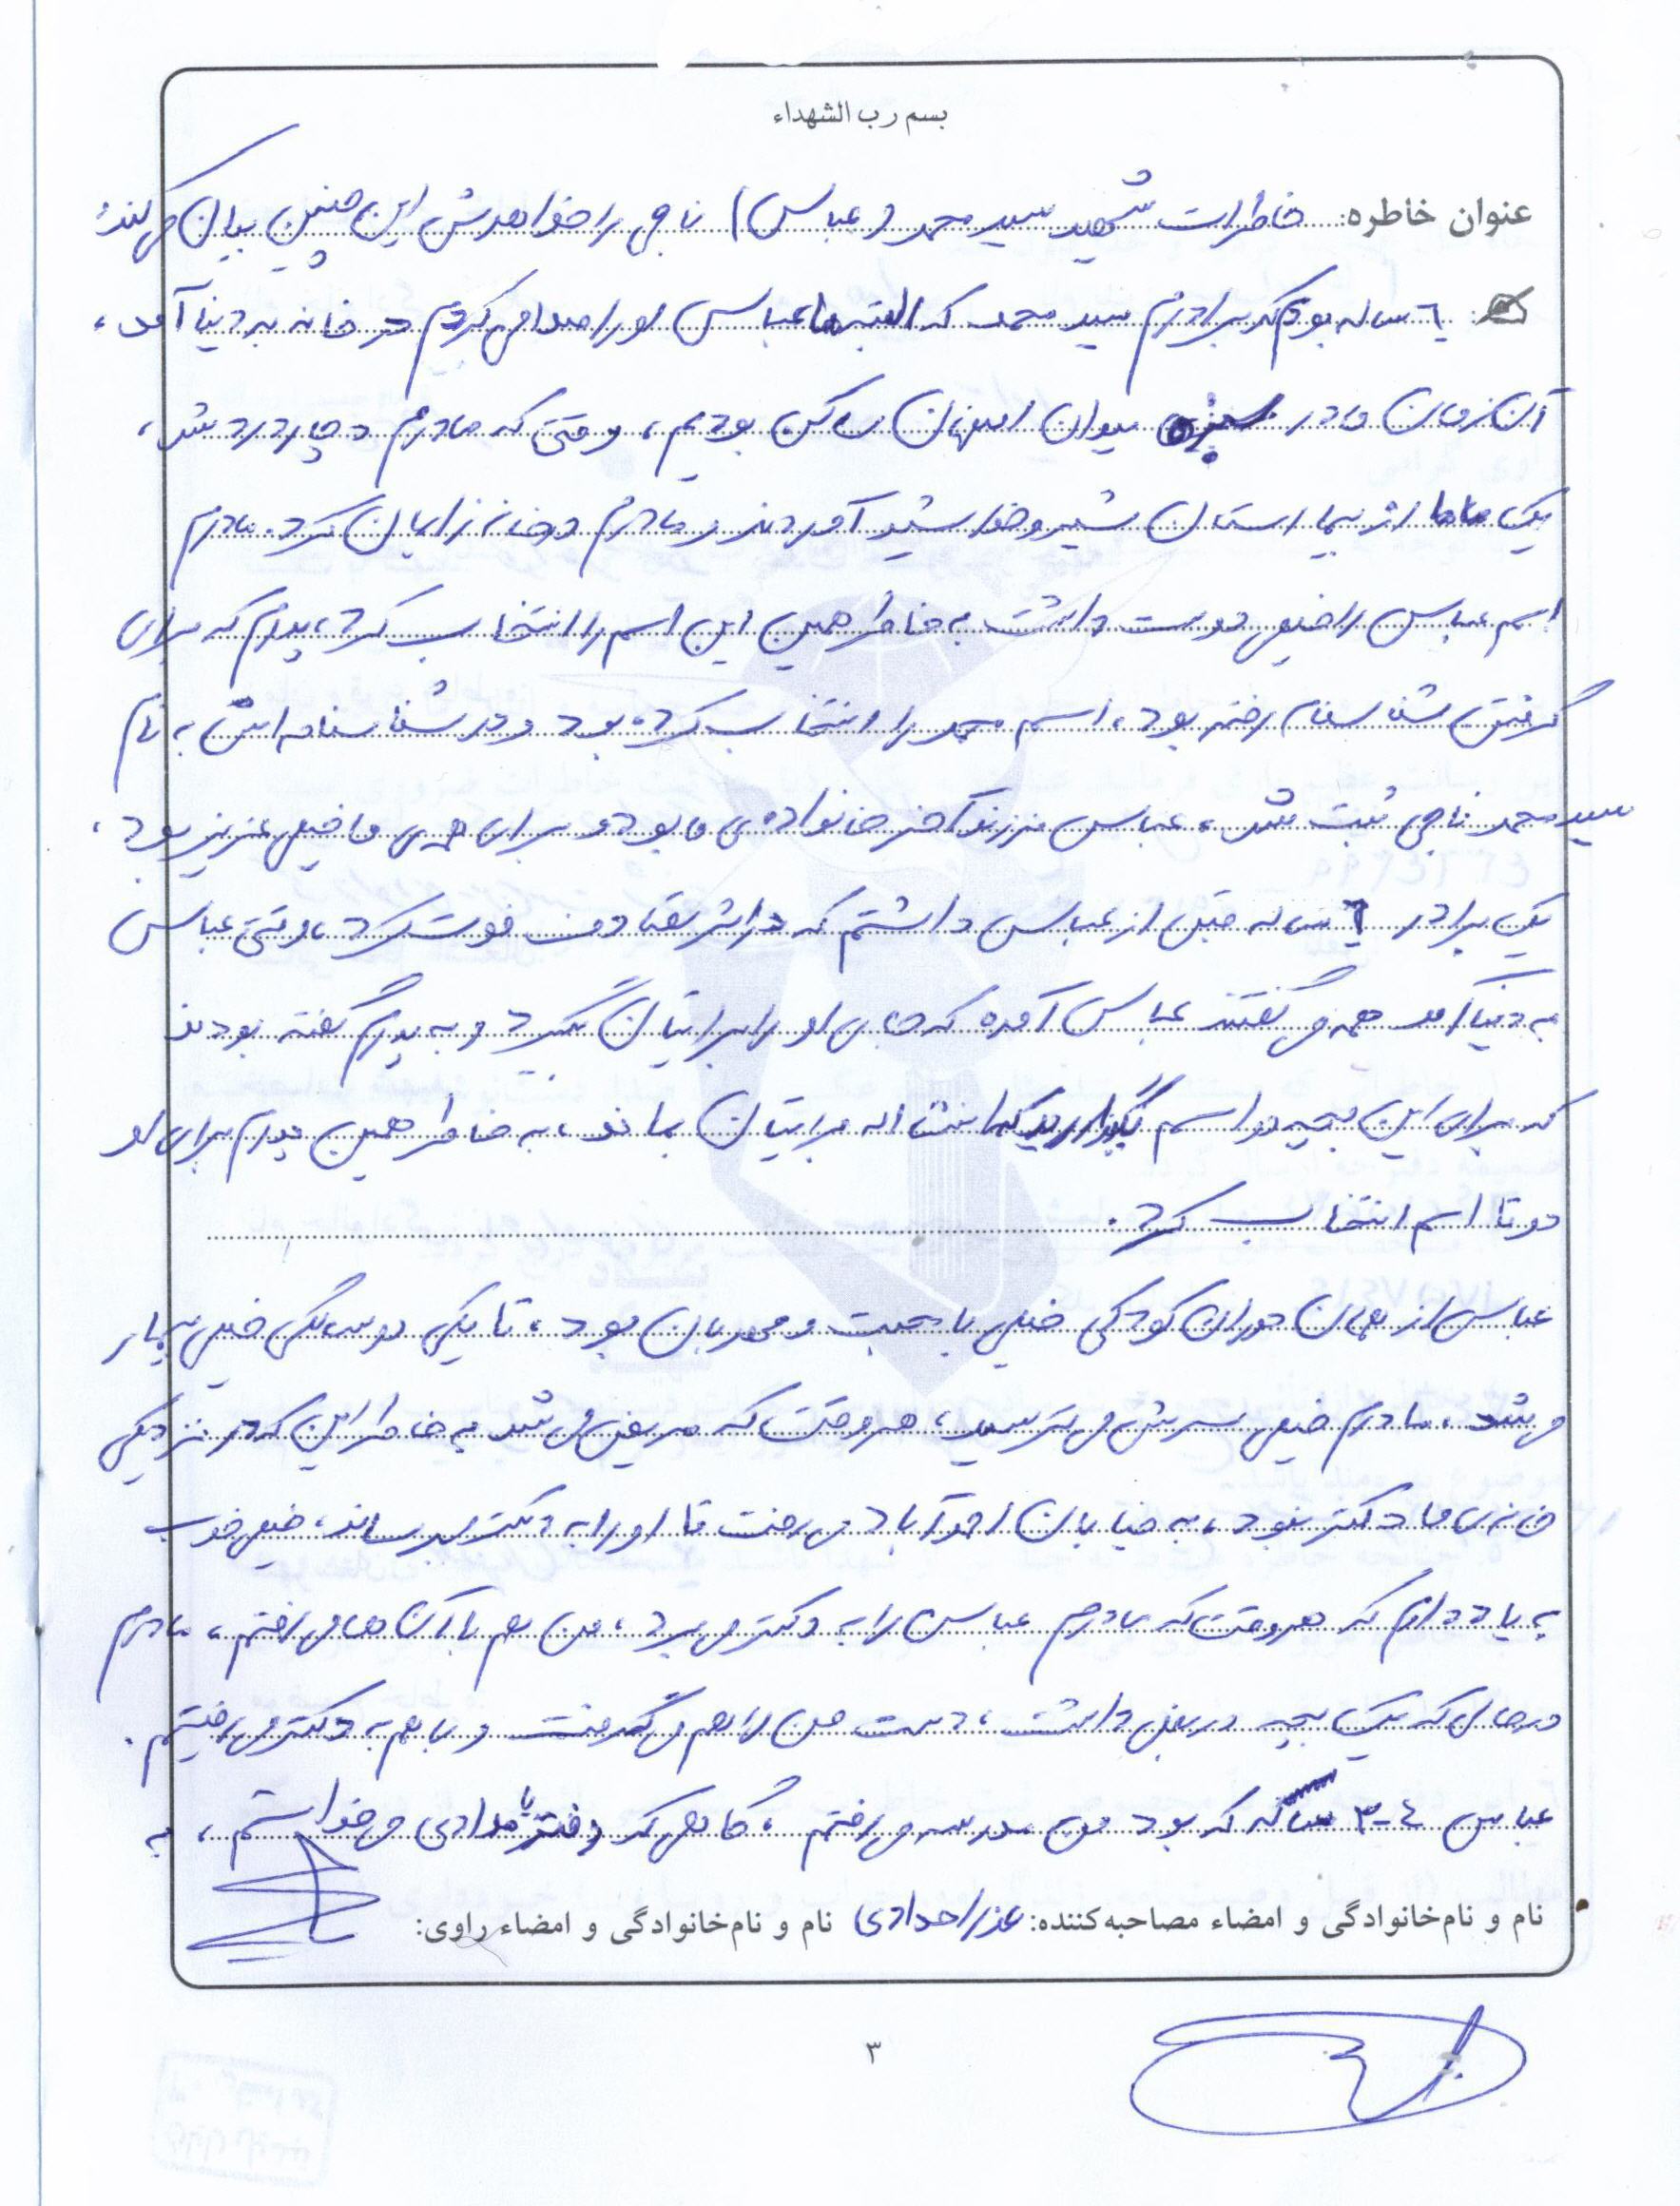 بسم رب الشهداء
عنوان خاطره: خاطرات شهید سید محمد (عباس) ناجی را خواهرش این چنین بیان می کند:
٦ ساله بودم که برادرم سید محمد که البته ما عباس او را صدا می کردیم در خانه به دنیا آمد،
آن زمان ما در سبزه میدان اصفهان ساکن بودیم، وقتی که مادرم دچار درد شد،
یک ماما از بیمارستان شیر و خورشید آوردند و مادرم در خانه زایمان کرد. مادرم
اسم عباس را خیلی دوست داشت به خاطر همین این اسم را انتخاب کرد، پدرم که برای
گرفتن شناسنامه رفته بود، اسم محمد را انتخاب کرده بود و در شناسنامه اش به نام
سید محمد ناجی ثبت شد، عباس فرزند آخر خانواده ی ما بود و برای همه ی ما خیلی عزیز بود،
یک برادر ٦ ساله قبل از عباس داشتم که در اثر تصادف فوت کرد، وقتی عباس
به دنیا آمد همه می گفتند عباس آمده که جای او را برایتان بگیرد و به پدرم گفته بودند
که برای این بچه دو اسم بگذارید که انشااله برایتان بماند، به خاطر همین پدرم برای او
دو تا اسم انتخاب کرد.
عباس از همان دوران کودکی خیلی با محبت و مهربان بود، تا یکی دو سالگی خیلی بیمار
می شد، مادرم خیلی سرش می ترسید، هر وقت که مریض می شد به خاطر این که در نزدیکی
خانه ی ما دکتر نبود، به خیابان احمدآباد می رفت تا او را به دکتر برساند، خیلی خوب
به یاد دارم که هر وقت که مادرم عباس را به دکتر می برد، من هم با آن ها می رفتم، مادرم
در حالی که یک بچه در بغل داشت، دست من را هم می گرفت و با هم به دکتر می رفتیم.
عباس ٤-٣ ساله که بود من مدرسه می رفتم، گاهی که دفتر یا مدادی می خواستم، به
نام و نام‌خانوادگی و امضاء مصاحبه‌کننده: عذرا حدادی نام و نام‌خانوادگی و امضاء راوی:
٣